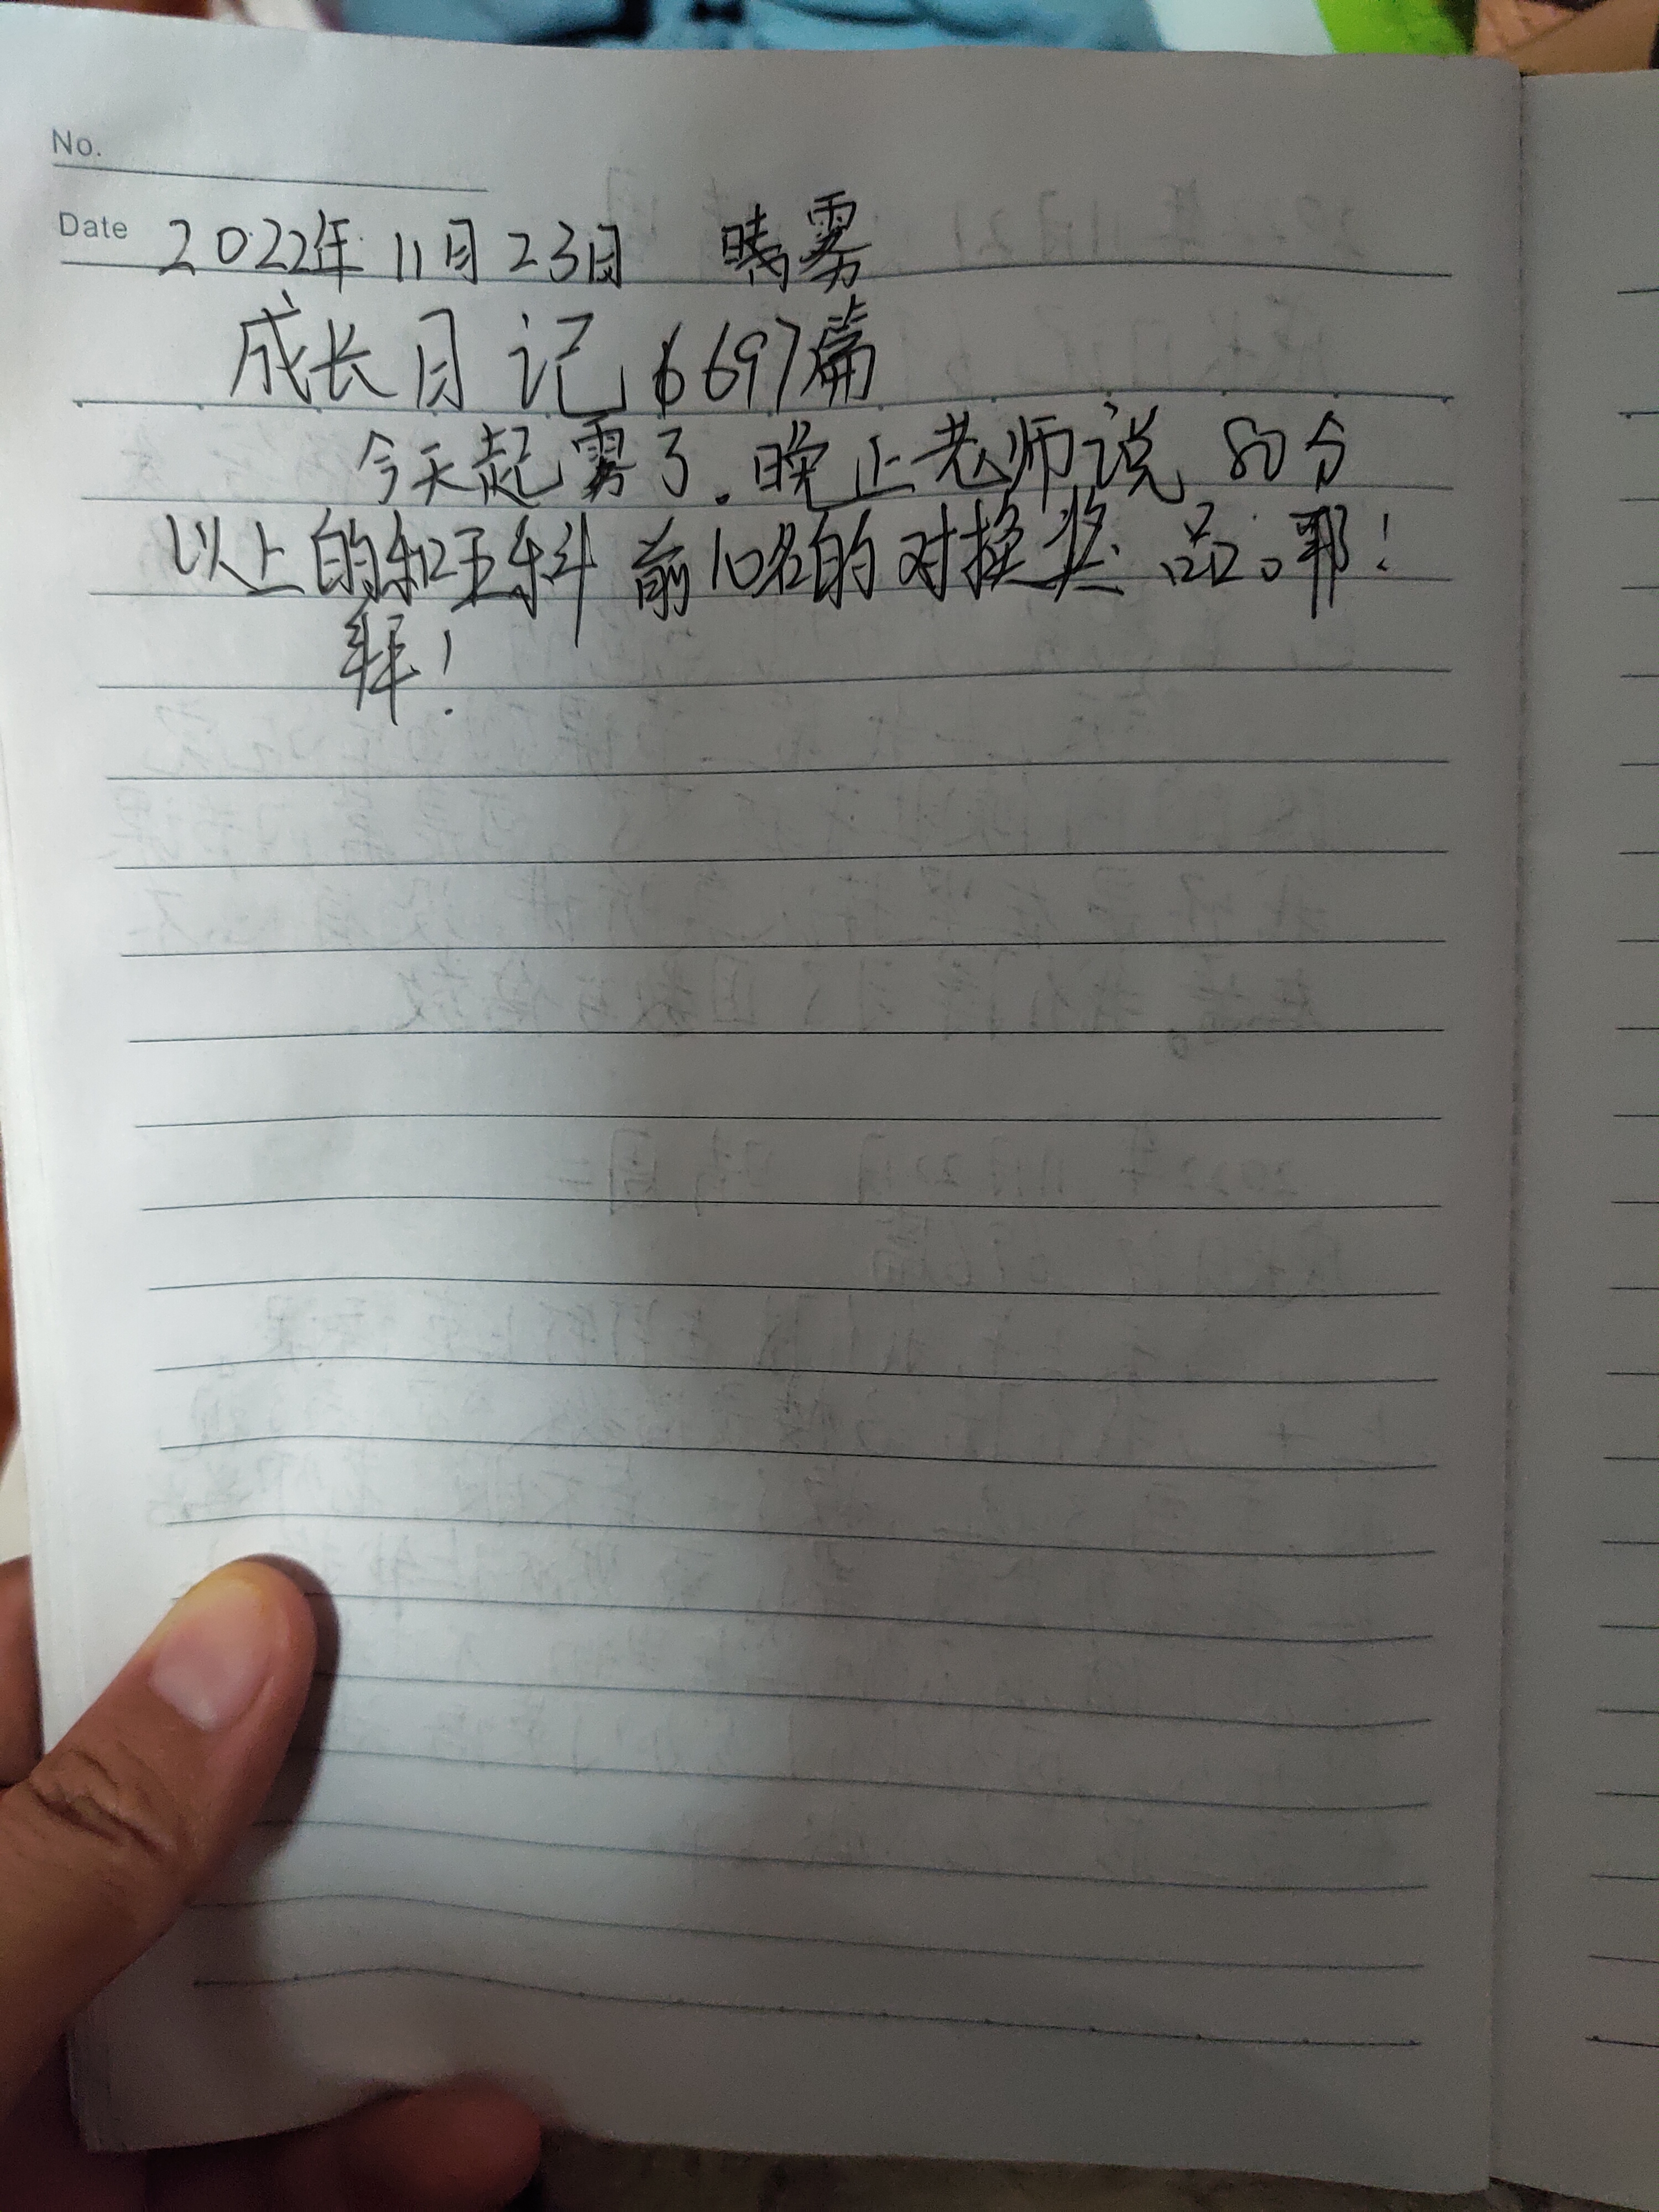 No.
Date 2022年11月23日 晴雾
成长日记 6697篇
今天起雾了.晚上老师说 80分
以上的和五科前10名的对换奖品。耶!
拜!